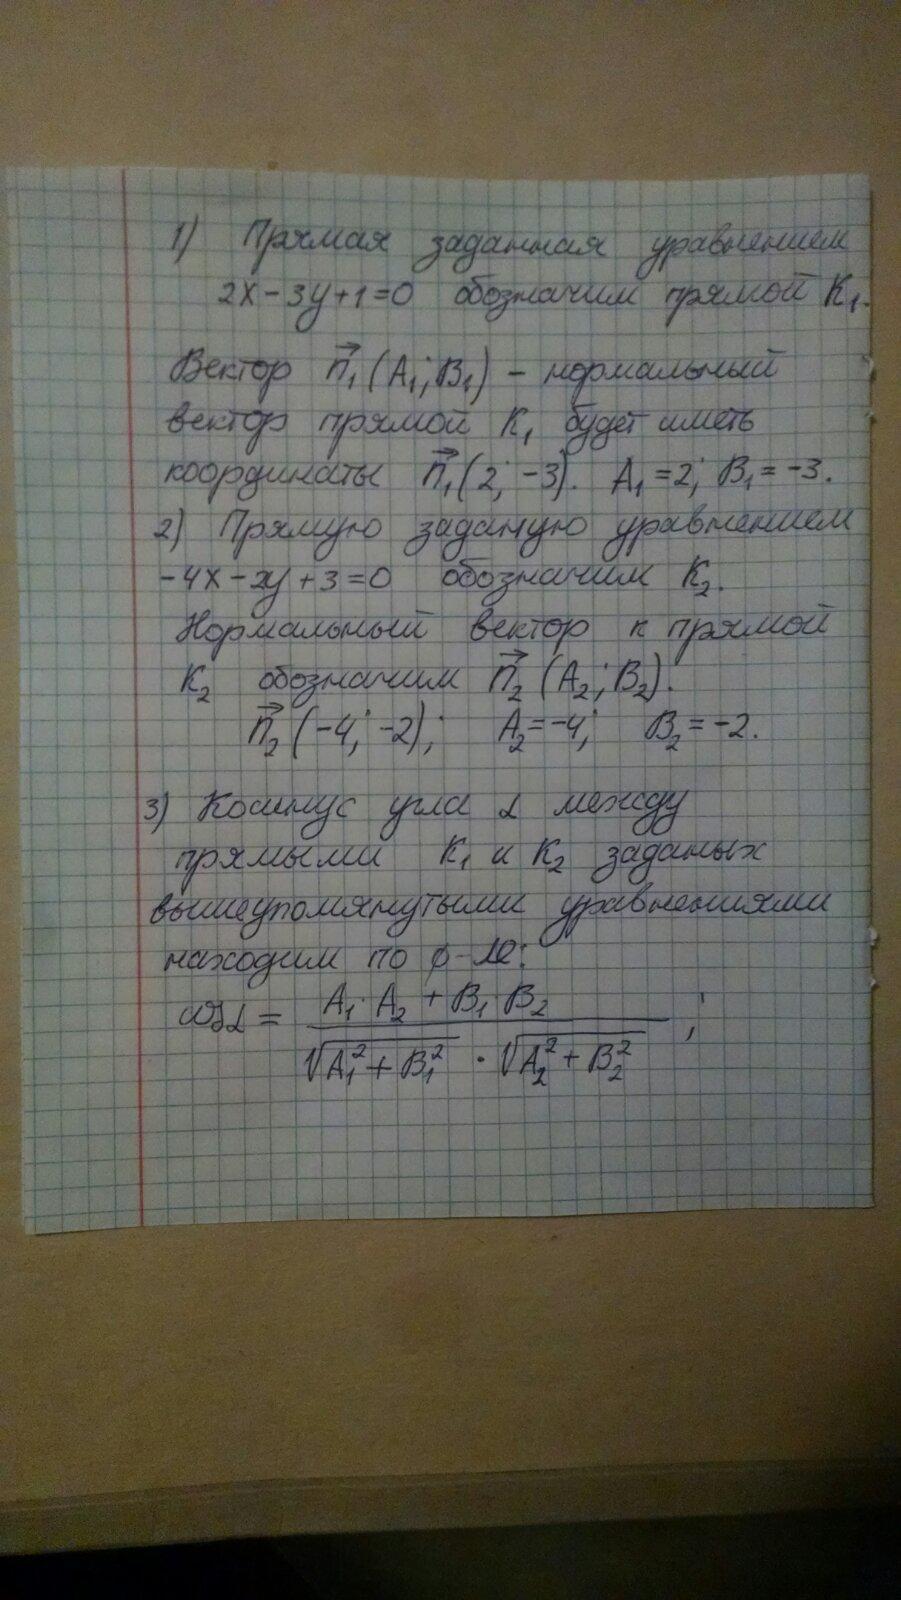 1) Прямая заданная уравнением
2x - 3y + 1 = 0 обозначим прямой K₁.
Вектор n⃗₁ (A₁; B₁) - нормальный
вектор прямой K₁ будет иметь
координаты n⃗₁ (2; -3). A₁ = 2; B₁ = -3.
2) Прямую заданую уравнением
-4x - 2y + 3 = 0 обозначим K₂.
Нормальный вектор к прямой
K₂ обозначим n⃗₂ (A₂; B₂).
n⃗₂ (-4; -2); A₂ = -4; B₂ = -2.
3) Косинус угла α между
прямыми K₁ и K₂ заданых
вышеупомянутыми уравнениями
находим по ф-ле:
cos α = (A₁·A₂ + B₁·B₂) / (√(A₁² + B₁²) · √(A₂² + B₂²));